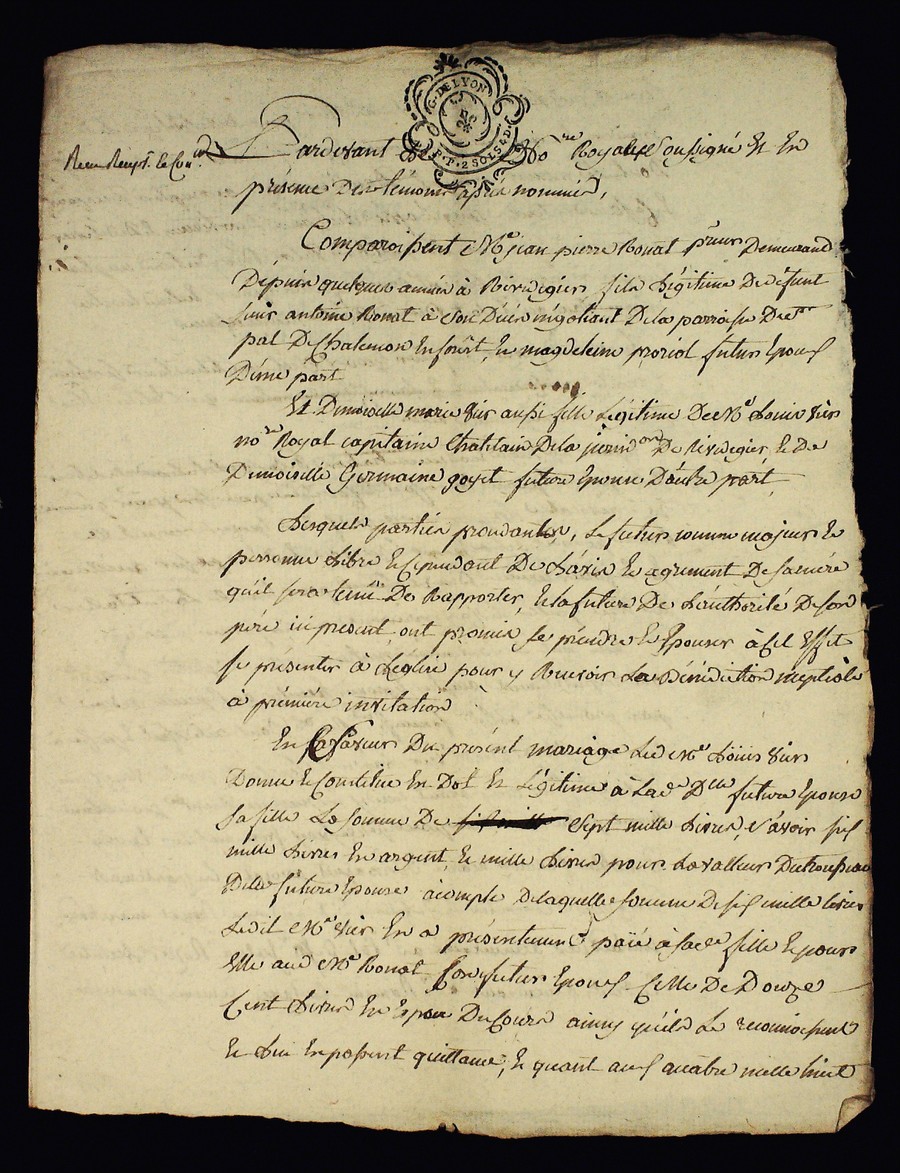 G. DE LYON
P.P. 2 SOLS 4 D.
Pardevant No.re Royal Soussigné Et En
présence Des témoins après nommés,
Comparoissent Me jean pierre Ronat Demeurant
Depuis quelques années à Rivedegier fils Légitime De défunt
Sieur antoine Ronat à son Décès négotiant De la parroisse De
De Chalencon En forêt, Et magdeleine proriol futur Epoux
D'une part
Et Demoiselle marie Vier aussi fille Légitime De Me Louis Vier
no.re Royal capitaine Chatelain De la jurid.on De Rivedegier, et De
Demoiselle Germaine goyet future Epouse D'autre part
Lesquels parties procedantes, Le futur comme majeur Et
personne Libre Et cependant De L'avis Et agrement De sa mère
qu'il sera tenu De Rapporter, Et la future De L'authorité De son
père ici présent, ont promis se prendre Et Epouser à cet Effet
se présenter à L'église pour y Recevoir La Bénédiction nuptiale
à première invitation
En faveur Du présent mariage Led. Me Louis Vier
Donne Et Constitue En Dot Et Légitime à Lad.e D.lle future Epouse
Sa fille La somme De Sept mille Livres, Sçavoir six
mille Livres En argent, Et mille Livres pour La valleur Du trousseau
De la future Epouse àcompte De laquelle somme De six mille livres
Ledit Me Vier En a présentement payé à sad.e fille Et pour
Elle aud. Me Ronat Son futur Epoux Celle De Douze
Cent Livres En Espèces Du Cours ainsy qu'ils Le reconnoissent
Et Lui En passent quittance, Et quant aux quatre mille huit